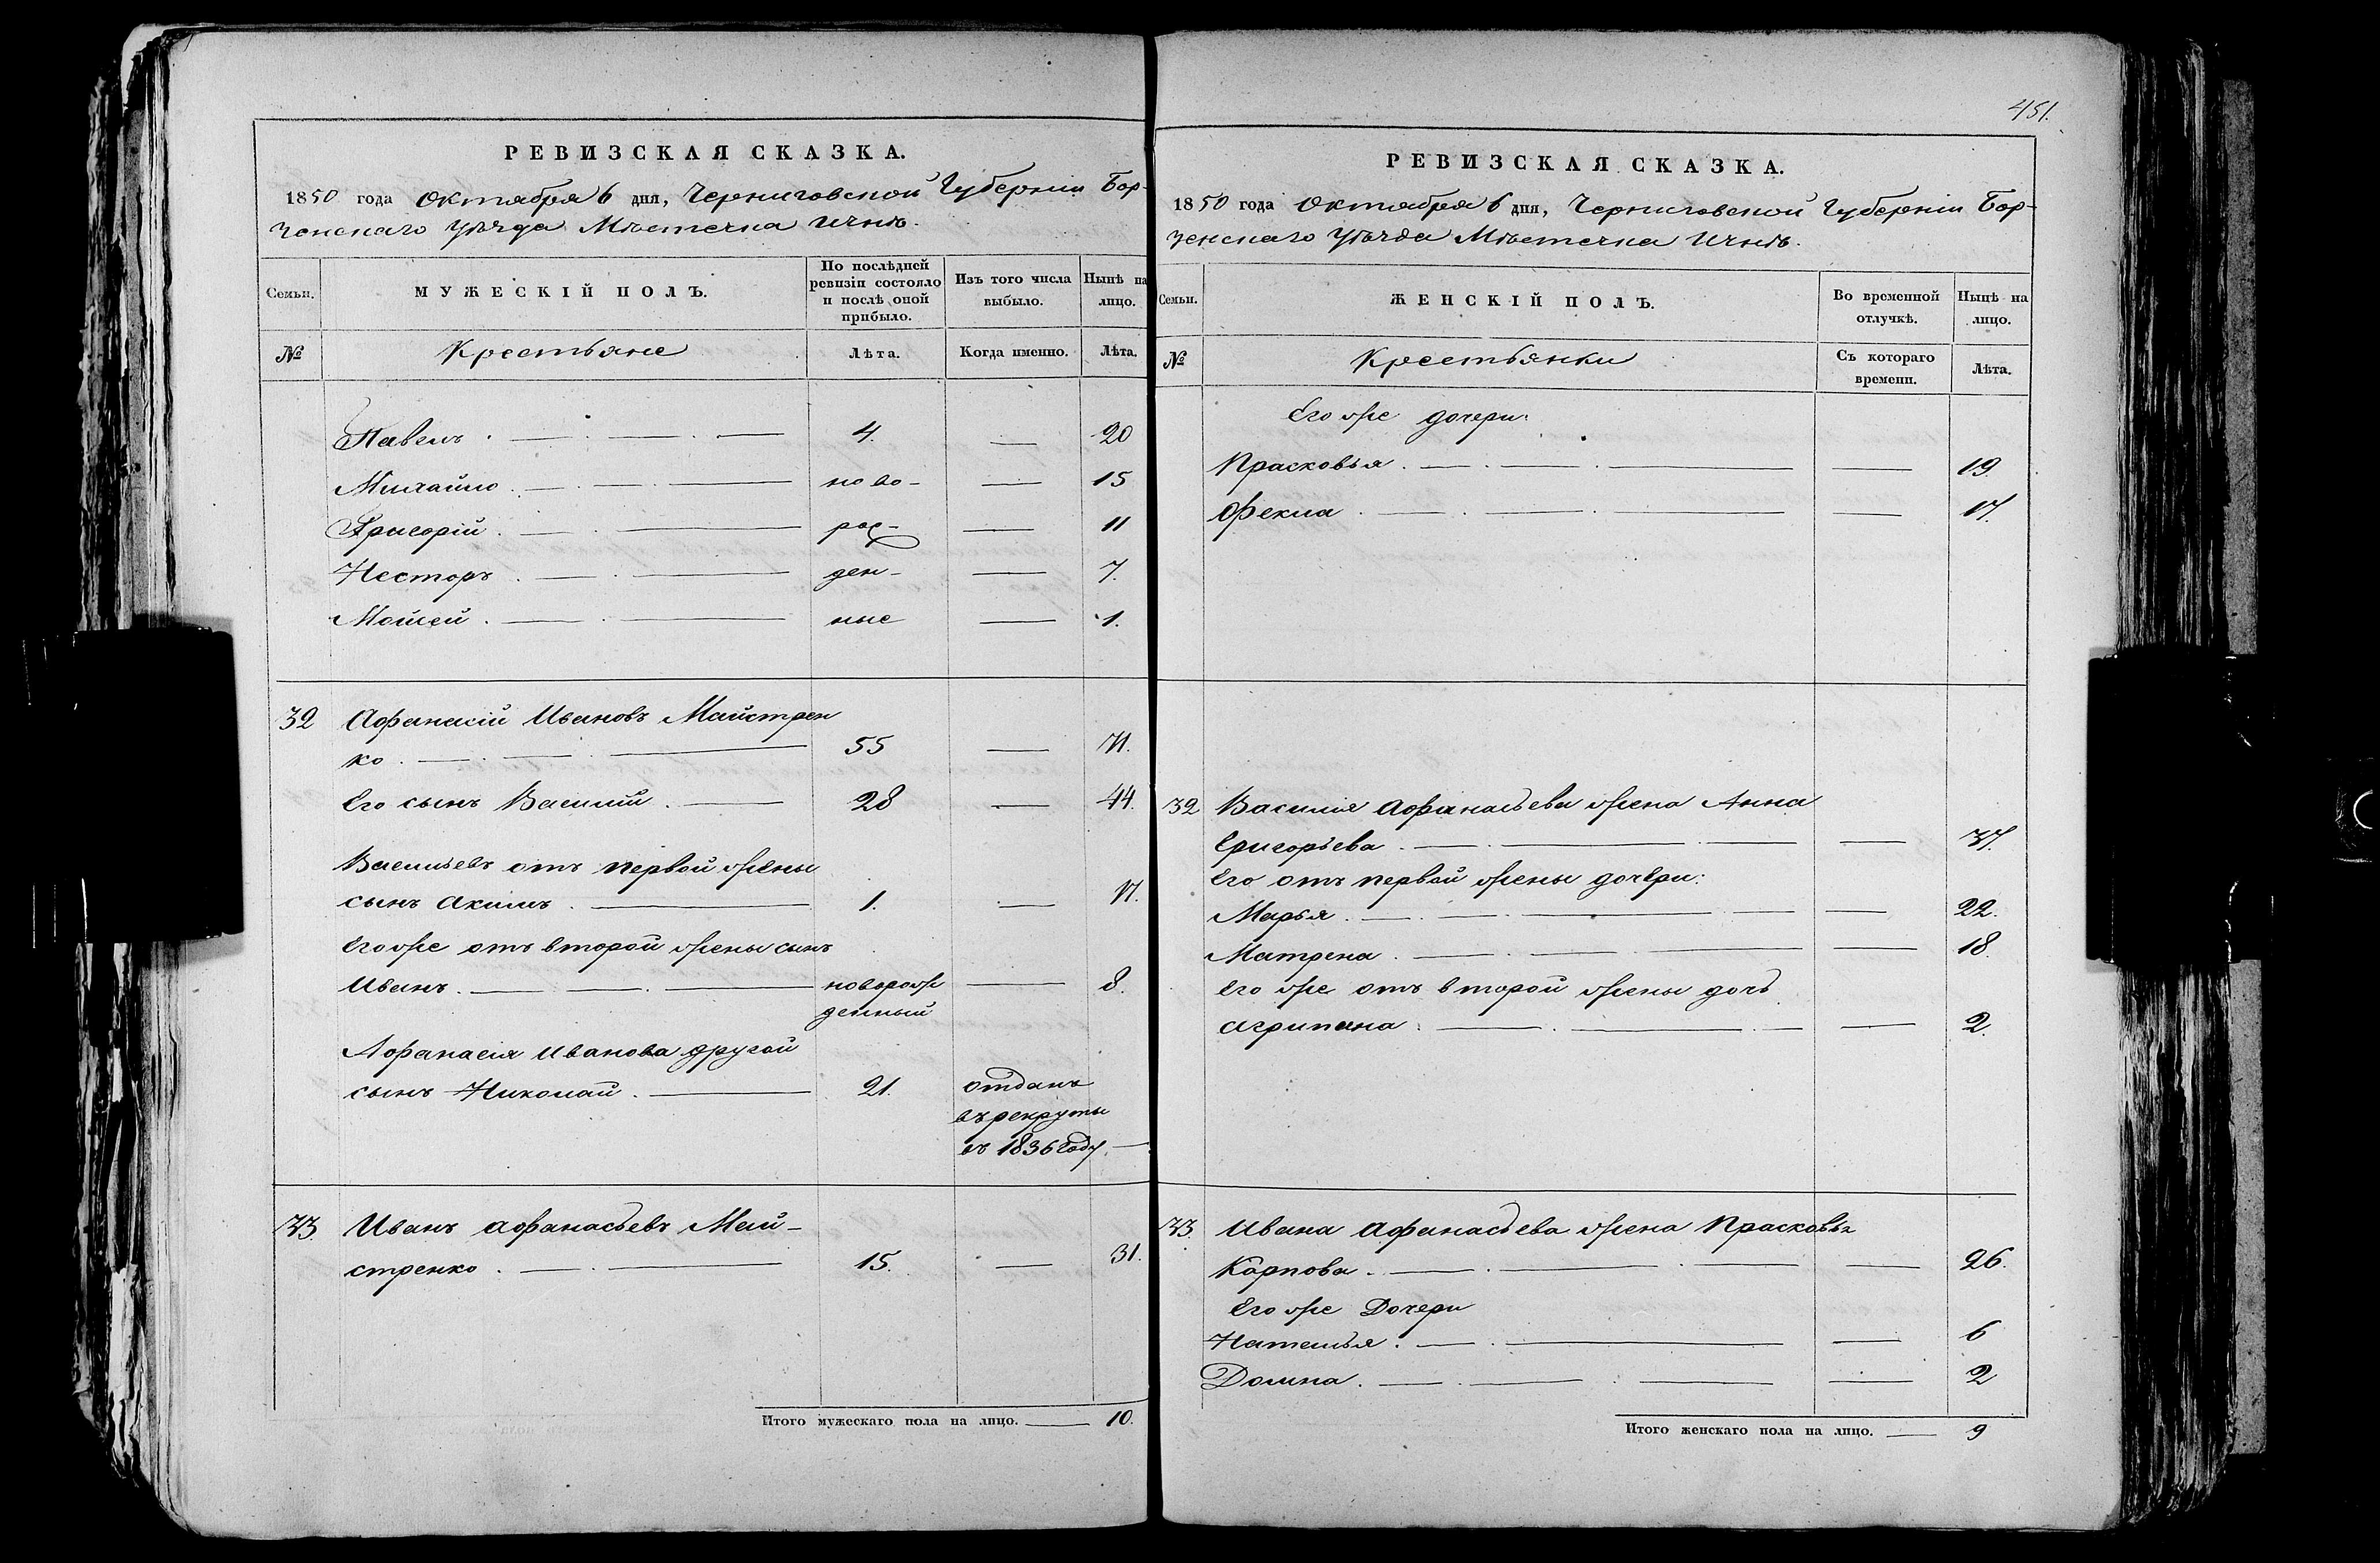 РЕВИЗСКАЯ СКАЗКА.
1850 года Октября 6 дня, Черниговской Губерніи Бор-
зенскаго Уѣзда Мѣстечка Ични.
Семьи.
МУЖЕСКІЙ ПОЛЪ.
По послѣдней
ревизіи состояло
и послѣ оной
прибыло.
Изъ того числа
выбыло.
Нынѣ на
лицо.
№
Крестьяне
Лѣта.
Когда именно.
Лѣта.
Павелъ 4. 20
Михайло ново- 15
Григорій рож- 11
Несторъ ден- 7.
Мойсей ные 1.
32 Афанасій Ивановъ Майстрен
ко 55 71.
Его сынъ Василій 28 44.
Васильевъ отъ первой жены
сынъ Акимъ 1. 17.
Его же отъ второй жены сынъ
Иванъ новорож 8.
денный
Афанасія Иванова другой
сынъ Николай 21. отданъ
въ рекруты
въ 1836 Году
33. Иванъ Афанасьевъ Май-
стренко 15. 31.
Итого мужескаго пола на лицо. 10.
451.
РЕВИЗСКАЯ СКАЗКА.
1850 года Октября 6 дня, Черниговской Губерніи Бор-
зенскаго Уѣзда Мѣстечка Ични.
Семьи.
ЖЕНСКІЙ ПОЛЪ.
Во временной
отлучкѣ.
Нынѣ на
лицо.
№
Крестьянки
Съ котораго
времени.
Лѣта.
Его же дочери:
Прасковья 19
Фекла 17.
32 Василія Афанасьева жена Анна
Григорьева 37.
Его отъ первой жены дочери:
Марья 22.
Матрена 18.
Его же отъ второй жены дочь
Агрипина 2.
33. Ивана Афанасьева жена Прасковья
Карпова 26.
Его же Дочери
Наталья 6
Домна 2
Итого женскаго пола на лицо. 9